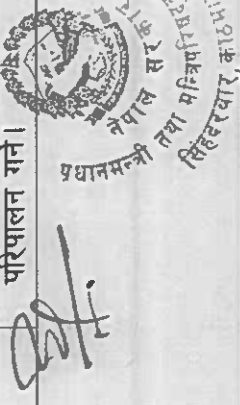 परिपालन गर्ने।
नेपाल सरकार
प्रधानमन्त्री तथा मन्त्रिपरिषद्
सिंहदरबार,